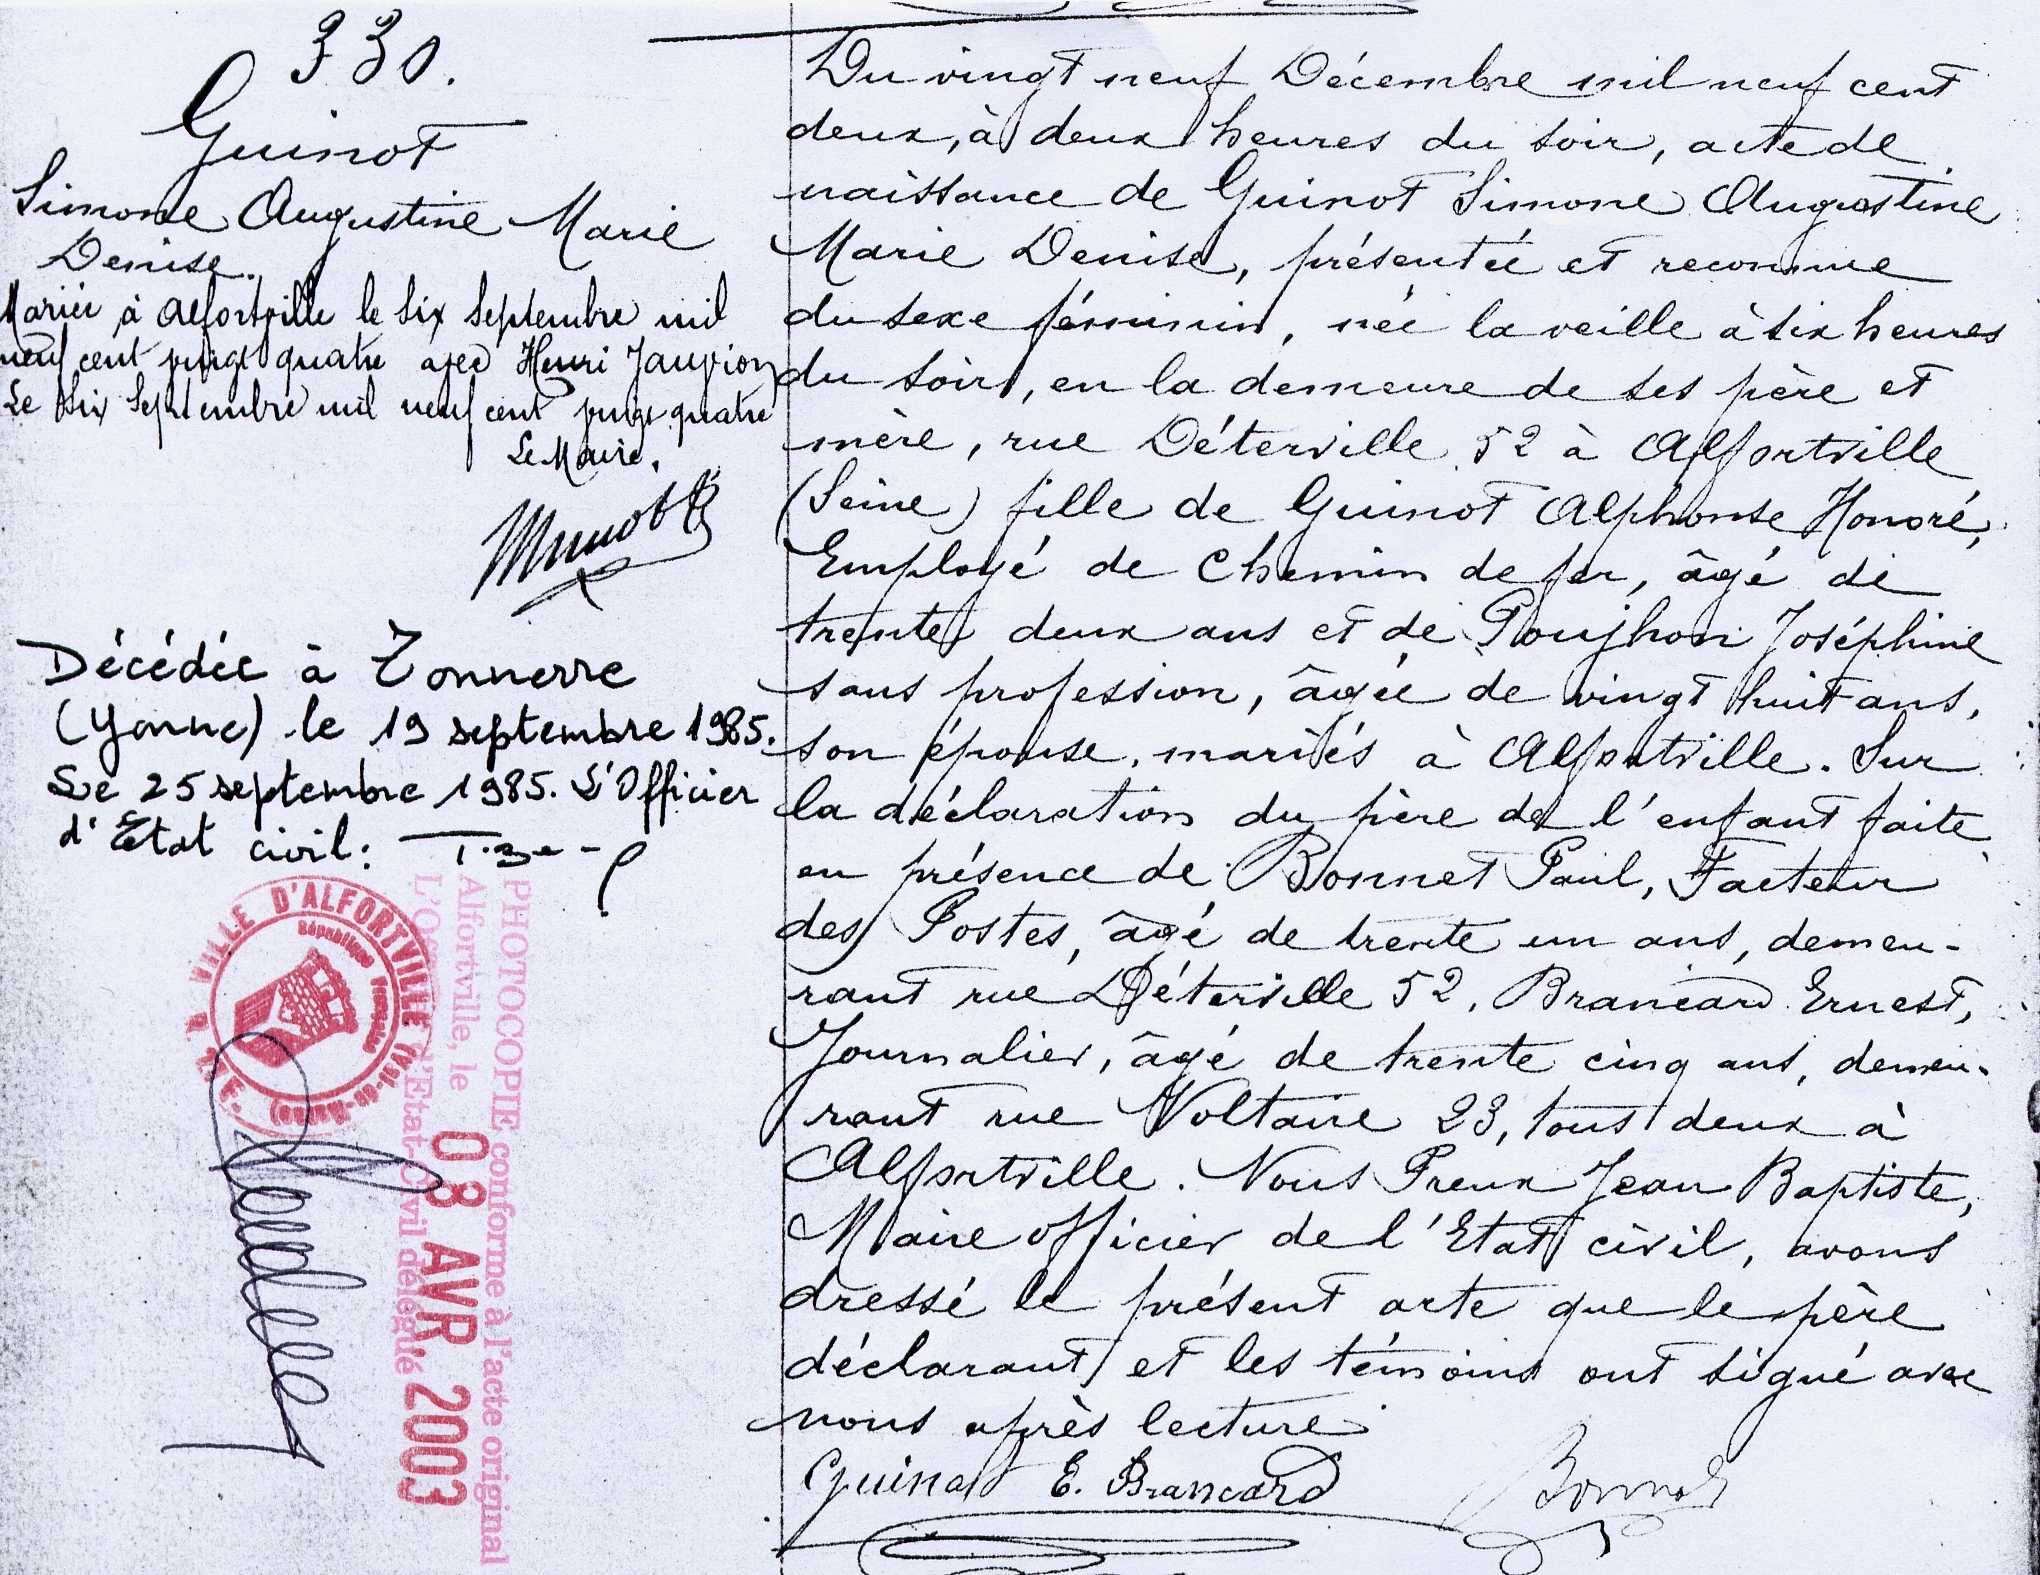 330.
Guinot
Simone Augustine Marie
Denise.
Mariée à Alfortville le six septembre mil
neuf cent vingt quatre avec Henri Jauvion
Le six septembre mil neuf cent vingt quatre
Le Maire.
Décédée à Tonnerre
(Yonne) le 19 septembre 1985.
Le 25 septembre 1985. L'Officier
d'État civil:
VILLE D'ALFORTVILLE (Val-de-Marne)
République Française
PHOTOCOPIE conforme à l'acte original
Alfortville, le
08 AVR. 2003
d'Etat-Civil délégué
Du vingt neuf Décembre mil neuf cent
deux, à deux heures du soir, acte de
naissance de Guinot Simone Augustine
Marie Denise, présentée et reconnue
du sexe féminin, née la veille à six heures
du soir, en la demeure de ses père et
mère, rue Déterville 52 à Alfortville
(Seine) fille de Guinot Alphonse Honoré,
Employé de chemin de fer, âgé de
trente deux ans et de Joséphine
sans profession, âgée de vingt huit ans,
son épouse, mariés à Alfortville. Sur
la déclaration du père de l'enfant faite
en présence de Bonnet Paul, Facteur
des Postes, âgé de trente un ans, demeu-
rant rue Déterville 52, Brancard Ernest,
Journalier, âgé de trente cinq ans, demeu-
rant rue Voltaire 23, tous deux à
Alfortville. Nous Preux Jean Baptiste,
Maire officier de l'Etat civil, avons
dressé le présent acte que le père
déclarant et les témoins ont signé avec
nous après lecture
Guinot E. Brancard Bonnet